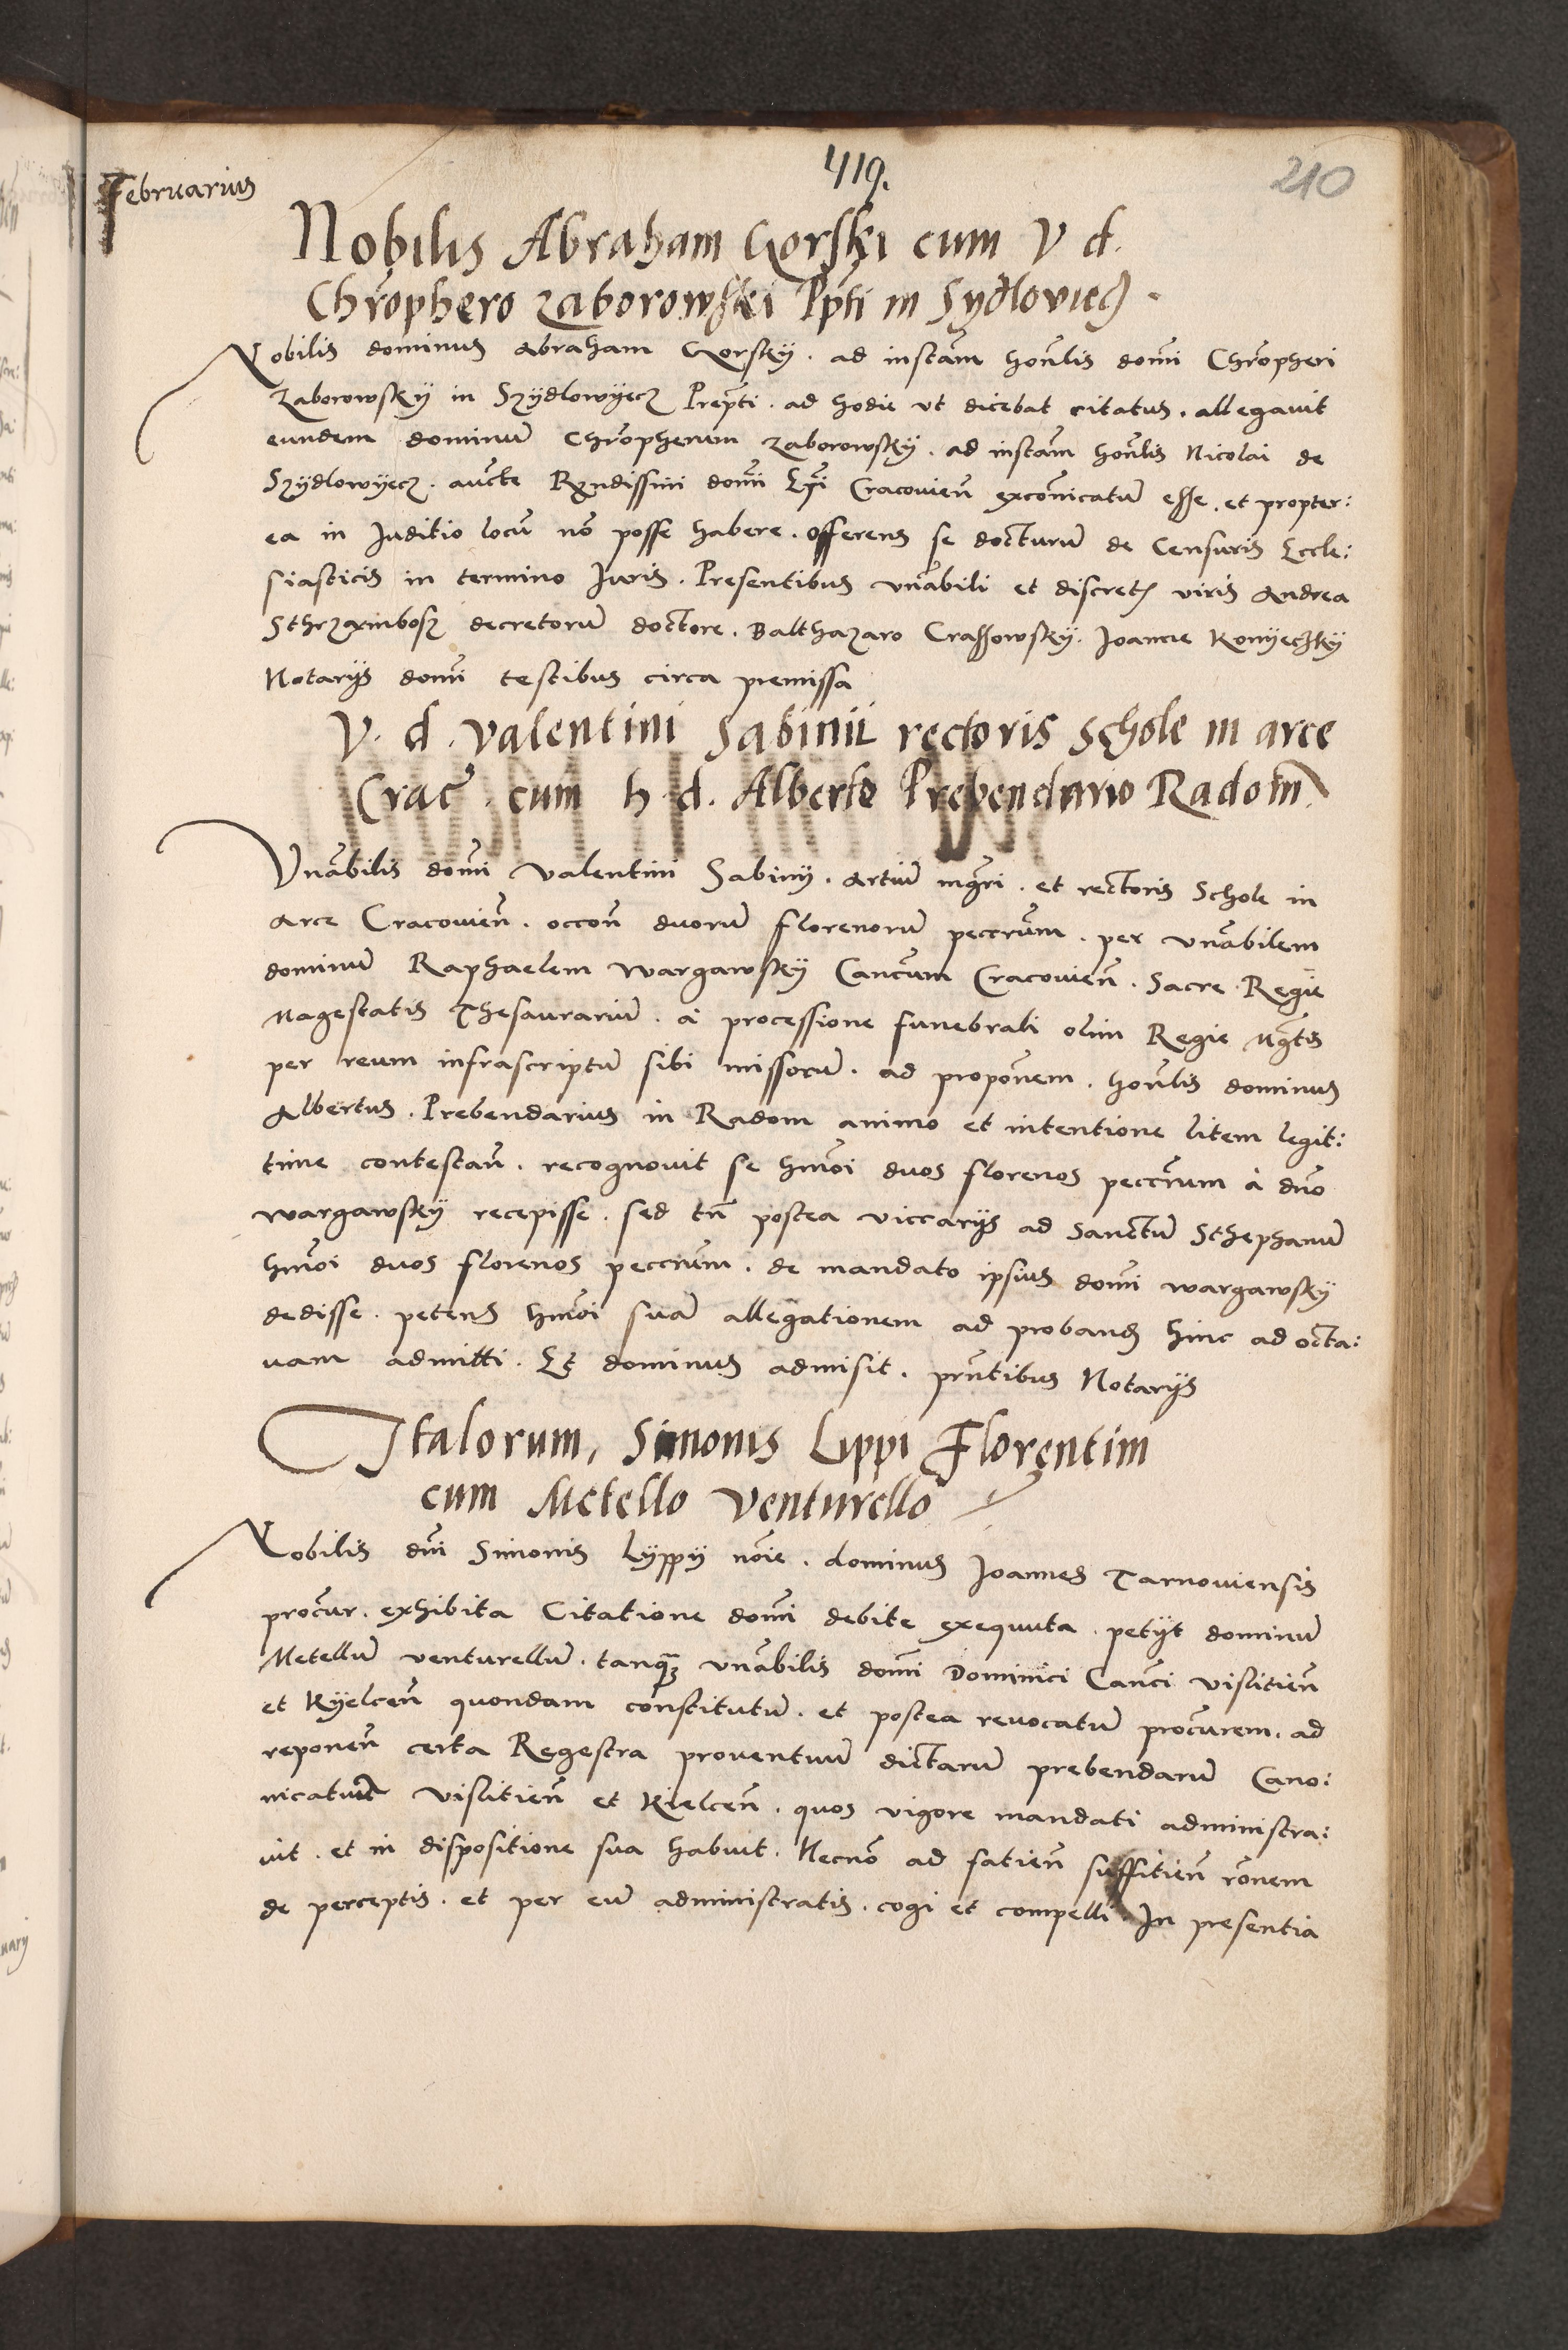 419.
210
Februarius
Nobilis Abraham Gorski cum V d.
Chrophero Zaborowski Ppti in Sydloviecz.
Nobilis dominus Abraham Gorsky . ad instam honlis domi Chropheri
Zaborowsky in Szydlowyecz Prepti . ad hodie vt dicebat citatus . allegavit
eundem dominum Chropherum Zaborowsky . ad instam honlis Nicolai de
Szydlowyecz . aucte Rendissimi domi Epi Cracovien excomicatum esse . et propter:
ea in Juditio locum no posse habere . offerens se docturum de Censuris Eccle:
siasticis in termino Juris . Presentibus vnabili et discretis viris Andrea
Sthrzembosz decretorum doctore . Balthazaro Crassowsky . Joanne Konyeczky
Notarys domi testibus circa premissa
V. d. Valentini Sabinii rectoris schole in arce
Crac . cum h d. Alberto Prebendario Radom
Vnabilis domi Valentini Sabiny . Artium mgri . et rectoris Schole in
Arce Cracovien . occon duorum florenorum peccrum . per vnabilem
dominum Raphaelem Wargawsky Cancum Cracovien . Sacre Regie
Magestatis Thesaurarium . a processione funebrali olim Regie Mgtis
per reum infrascriptum sibi missorum . ad proponem . honlis dominus
Albertus . Prebendarius in Radom animo et intentione litem legit:
time contestan . recognovit se hmoi duos florenos peccrum à dno
Wargawsky recepisse . sed tn postea viccarys ad Sanctum Sthephanum
hmoi duos florenos peccrum . de mandato ipsius domi Wargawsky
dedisse . petens hmoi suam allegationem ad proband hinc ad octa:
uam admitti . Et dominus admisit . pntibus Notarys
Italorum, Simonis Lippi Florentini
cum Metello Venturello
Nobilis dni Simonis Lyppy noie . dominus Joannes Tarnoviensis
procur . exhibita Citatione domi debite exequuta . petyt dominum
Metellum venturellum . tanquam vnabilis domi Dominici Canci vislitien
et Kyelcen quondam constitutum . et postea revocatum procurem . ad
reponen certa Regestra proventuum dictarum prebendarum Cano:
nicatuum vislitien et Kielcen . quos vigore mandati administra:
uit . et in dispositione sua habuit . Necno ad fatien suffitien ronem
de perceptis . et per eum administratis . cogi et compelli . In presentia